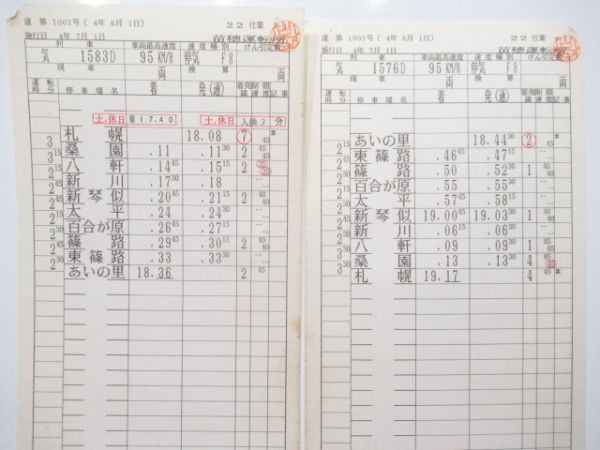 達 第 1001号 ( 4年 6月 1日)
22 仕業
施行日 4年 7月 1日
苗穂運転所
列 車 車両最高速度 速度種別 けん引定数
気 1583D 95 KM/H F8
現 車 換 算 両
運転時分 停車場名 着 発(通) 着発線 制限速度 記事
土,休日 17.40 土,休日 入換 3 分
札幌 18.08 7 45
3 15 桑園 .11 .11 30 2 45 45
2 45 八軒 .14 45 .15 15 2 35 35
2 15 新川 .17 30 .18
2 新琴似 .20 45 .21 15 2 40 40
太平 .24 .24 30
百合が原 .26 45 .27 15
篠路 .29 45 .30 15 2 40 40
東篠路 .33 .33 30
あいの里 18.36 2 45
達 第 1001号 ( 4年 6月 1日)
22 仕業
施行日 4年 7月 1日
苗穂運転所
列 車 車両最高速度 速度種別 けん引定数
気 1576D 95 KM/H F8
現 車 換 算 両
運転時分 停車場名 着 発(通) 着発線 制限速度 記事
あいの里 18.44 30 2 45
2 15 東篠路 .46 45 .47 15
篠路 .50 .52 30 1 40 40
百合が原 .55 .55 30
太平 .57 45 .58 15
新琴似 19.00 45 19.03 30 1 40 40
新川 .06 15 .06 30
八軒 .09 .09 30 1 85 85
桑園 .13 .13 30 4 85
札幌 19.17 4 45